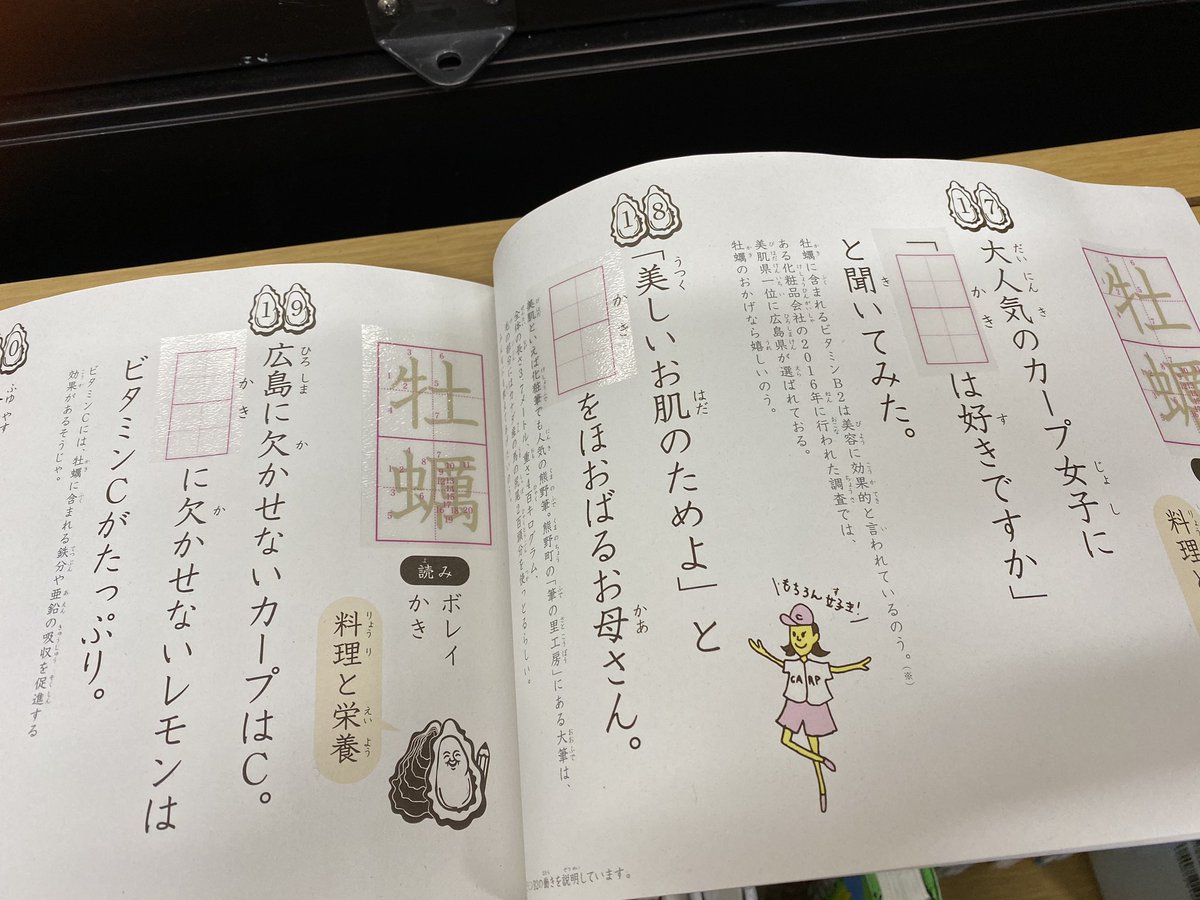 牡
蠣
料理
17
大人気のカープ女子に
「かきは好きですか」
と聞いてみた。
牡蠣に含まれるビタミンB2は美容に効果的と言われているのう。(※)
ある化粧品会社の2016年に行われた調査では、
美肌県一位に広島県が選ばれておる。
牡蠣のおかげなら嬉しいのう。
もちろん好き!
C
CARP
18
「美しいお肌のためよ」と
かきをほおばるお母さん。
美肌といえば化粧筆でも人気の熊野筆。熊野町の「筆の里工房」にある大筆は、
全体の長さ3.7メートル、重さ4百キログラム。
の働きを説明しています。
牡
蠣
読み
ボレイ
かき
料理と栄養
19
広島に欠かせないカープはC。
かきに欠かせないレモンは
ビタミンCがたっぷり。
ビタミンCには、牡蠣に含まれる鉄分や亜鉛の吸収を促進する
効果があるそうじゃ。